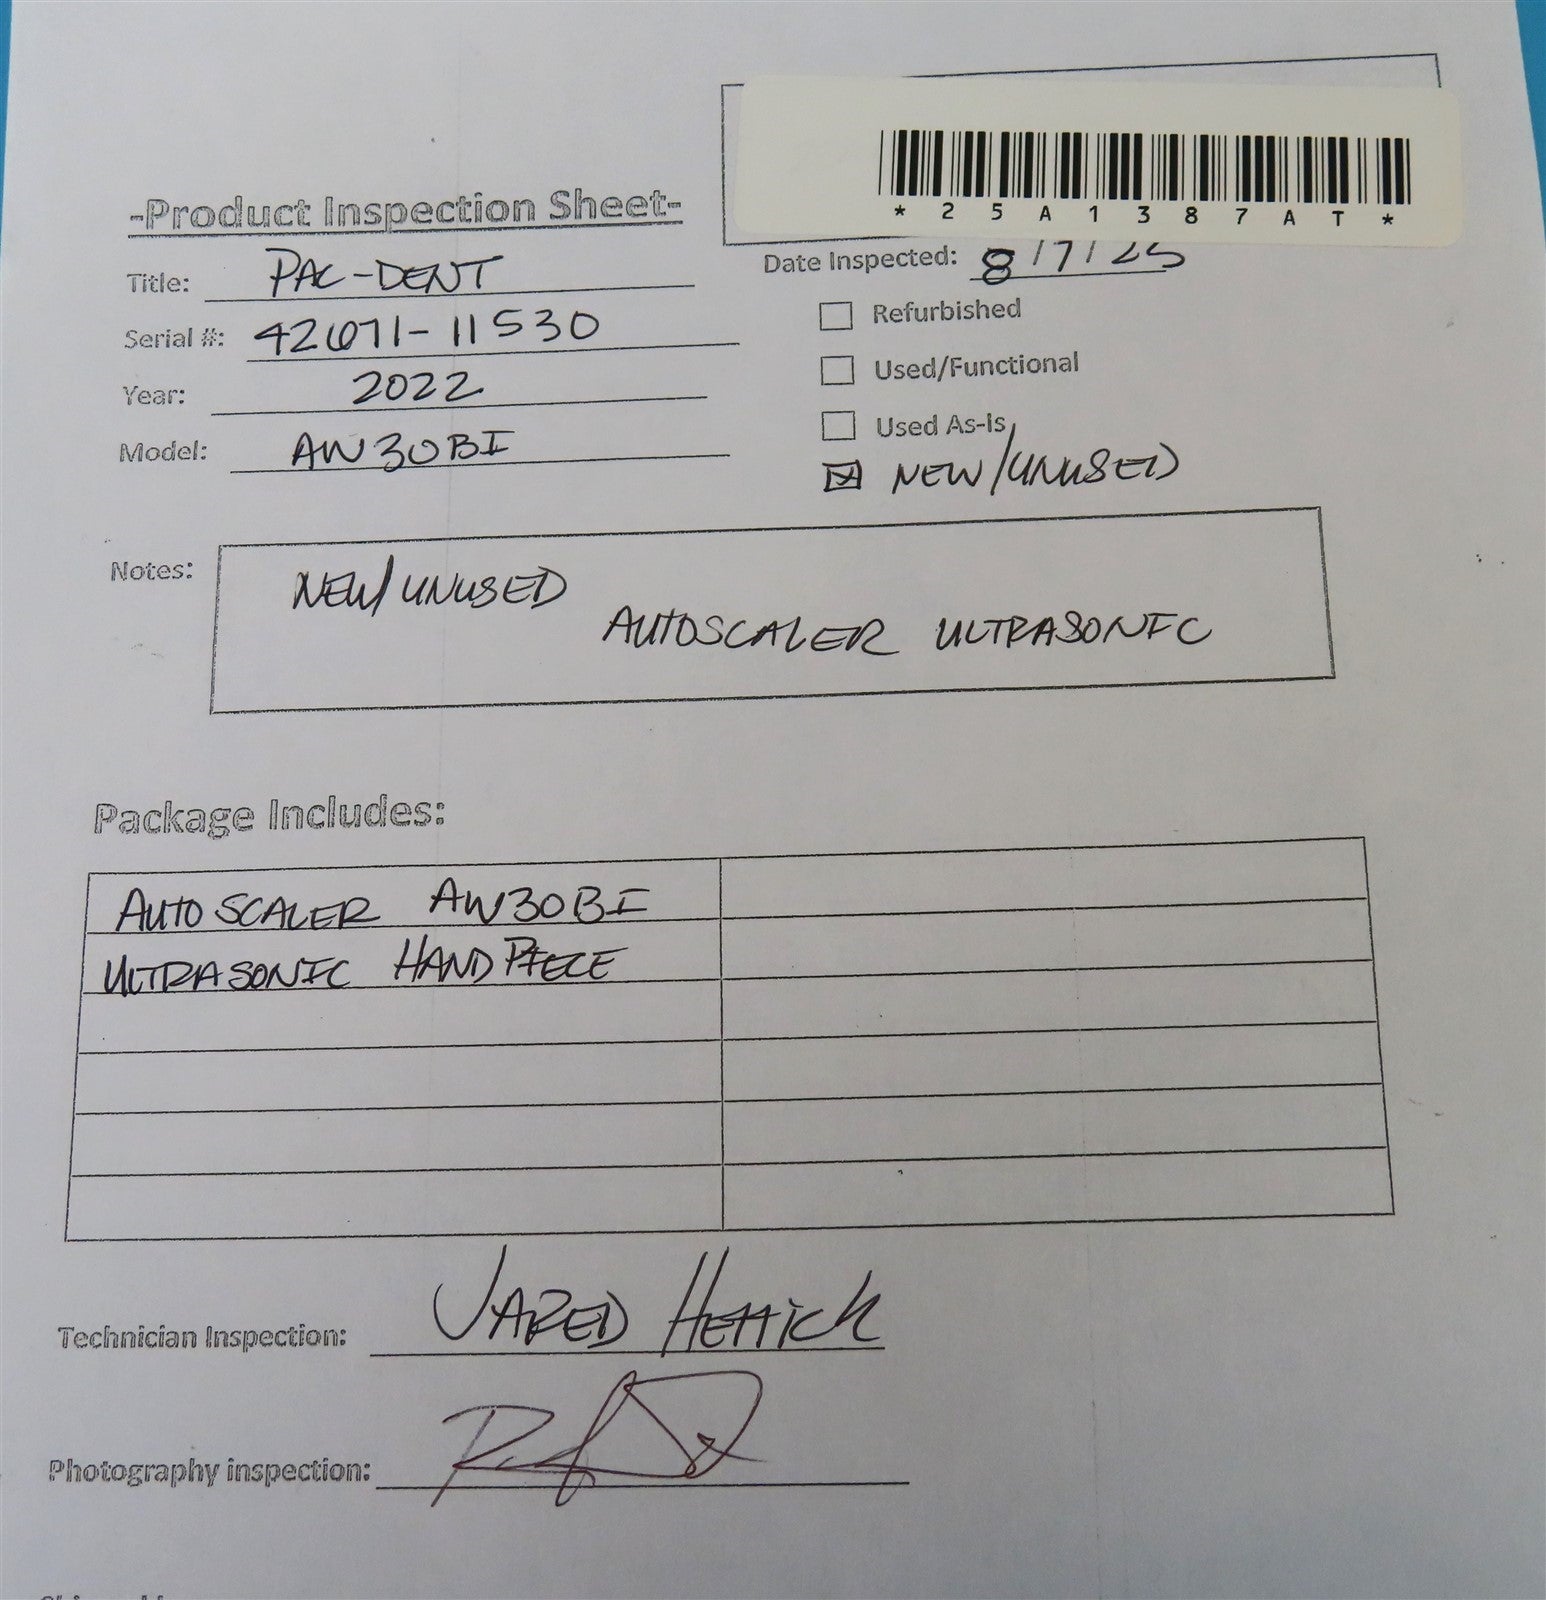 *25A1387AT*
-Product Inspection Sheet-
Date Inspected: 8/7/25
Title: PAC-DENT
Serial #: 42671-11530
Year: 2022
Model: AW30BI
Refurbished
Used/Functional
Used As-Is
NEW/UNUSED
Notes:
NEW/UNUSED
AUTOSCALER ULTRASONIC
Package Includes:
AUTOSCALER AW30BI
ULTRASONIC HANDPIECE
Technician Inspection: JARED
Photography inspection: